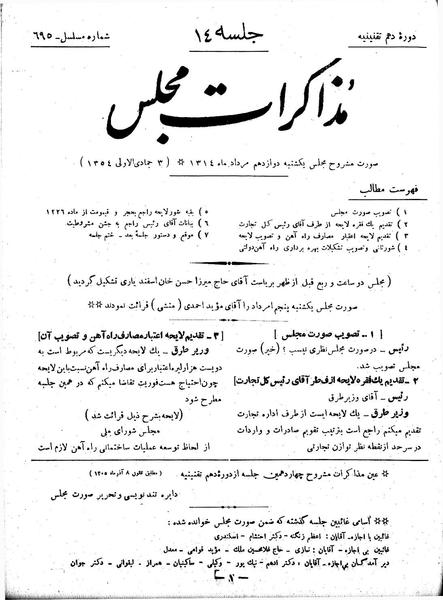 دورهٔ دهم تقنینیه
جلسه ۱۴
شماره مسلسل - ۶۹۵
مذاکرات مجلس
صورت مشروح مجلس یکشنبه دوازدهم مرداد ماه ۱۳۱۴ * ( ۳ جمادی‌الاولی ۱۳۵۴ )
فهرست مطالب
۱ ) تصویب صورت مجلس
۲ ) تقدیم یک فقره لایحه از طرف آقای رئیس کل تجارت
۳ ) تقدیم لایحه اعتبار مصارف راه آهن و تصویب لایحه
۴ ) شور ثانی و تصویب تشکیلات بهره برداری راه آهن دولتی
۵ ) بقیه شور لایحه راجع بحجر و قیمومت از ماده ۱۲۲۶
۶ ) بیانات آقای رئیس راجع به جشن مشروطیت
۷ ) موقع و دستور جلسه بعد - ختم جلسه
( مجلس دو ساعت و ربع قبل از ظهر بریاست آقای حاج میرزا حسن خان اسفندیاری تشکیل گردید )
صورت مجلس یکشنبه پنجم امرداد را آقای مؤید احمدی ( منشی ) قرائت نمودند **
[ ۱ - تصویب صورت مجلس ]
رئیس - در صورت مجلس نظری نیست ؟ ( خیر ) صورت
مجلس تصویب شد.
۲ - تقدیم یک فقره لایحه از طرف آقای رئیس کل تجارت ]
رئیس - آقای وزیر طرق
وزیر طرق - یک لایحه ایست از طرف اداره تجارت
تقدیم میکنم راجع است بترتیب تقویم صادرات و واردات
در سرحد از نقطه نظر توازن تجارتی
[ ۳ - تقدیم لایحه اعتبار مصارف راه آهن و تصویب آن ]
وزیر طرق - یک لایحه دیگریست که مربوط است به
دویست هزار لیره اعتبار برای مصارف راه آهن نسبت باین لایحه
چون احتیاج هست فوریت تقاضا میکنم که در همین جلسه
مطرح شود
( لایحه بشرح ذیل قرائت شد )
مجلس شورای ملی
از لحاظ توسعه عملیات ساختمانی راه آهن لازم است
* عین مذاکرات مشروح چهاردهمین جلسه از دورهٔ دهم تقنینیه ( مطابق قانون ۸ آذر ماه ۱۳۰۵ )
دایره تند نویسی و تحریر صورت مجلس
** اسامی غائبین جلسه گذشته که ضمن صورت مجلس خوانده شده :
غائبین با اجازه - آقایان : اعظم زنگنه - دکتر احتشام - اسکندری
غائبین بی اجازه - آقایان : نمازی - حاج غلامحسین ملک - مؤید قوامی - معدل
دیر آمدگان بی اجازه - آقایان : دکتر ادهم - نیک پور - وکیلی - ساگینیان - همراز - لیقوانی - دکتر جوان